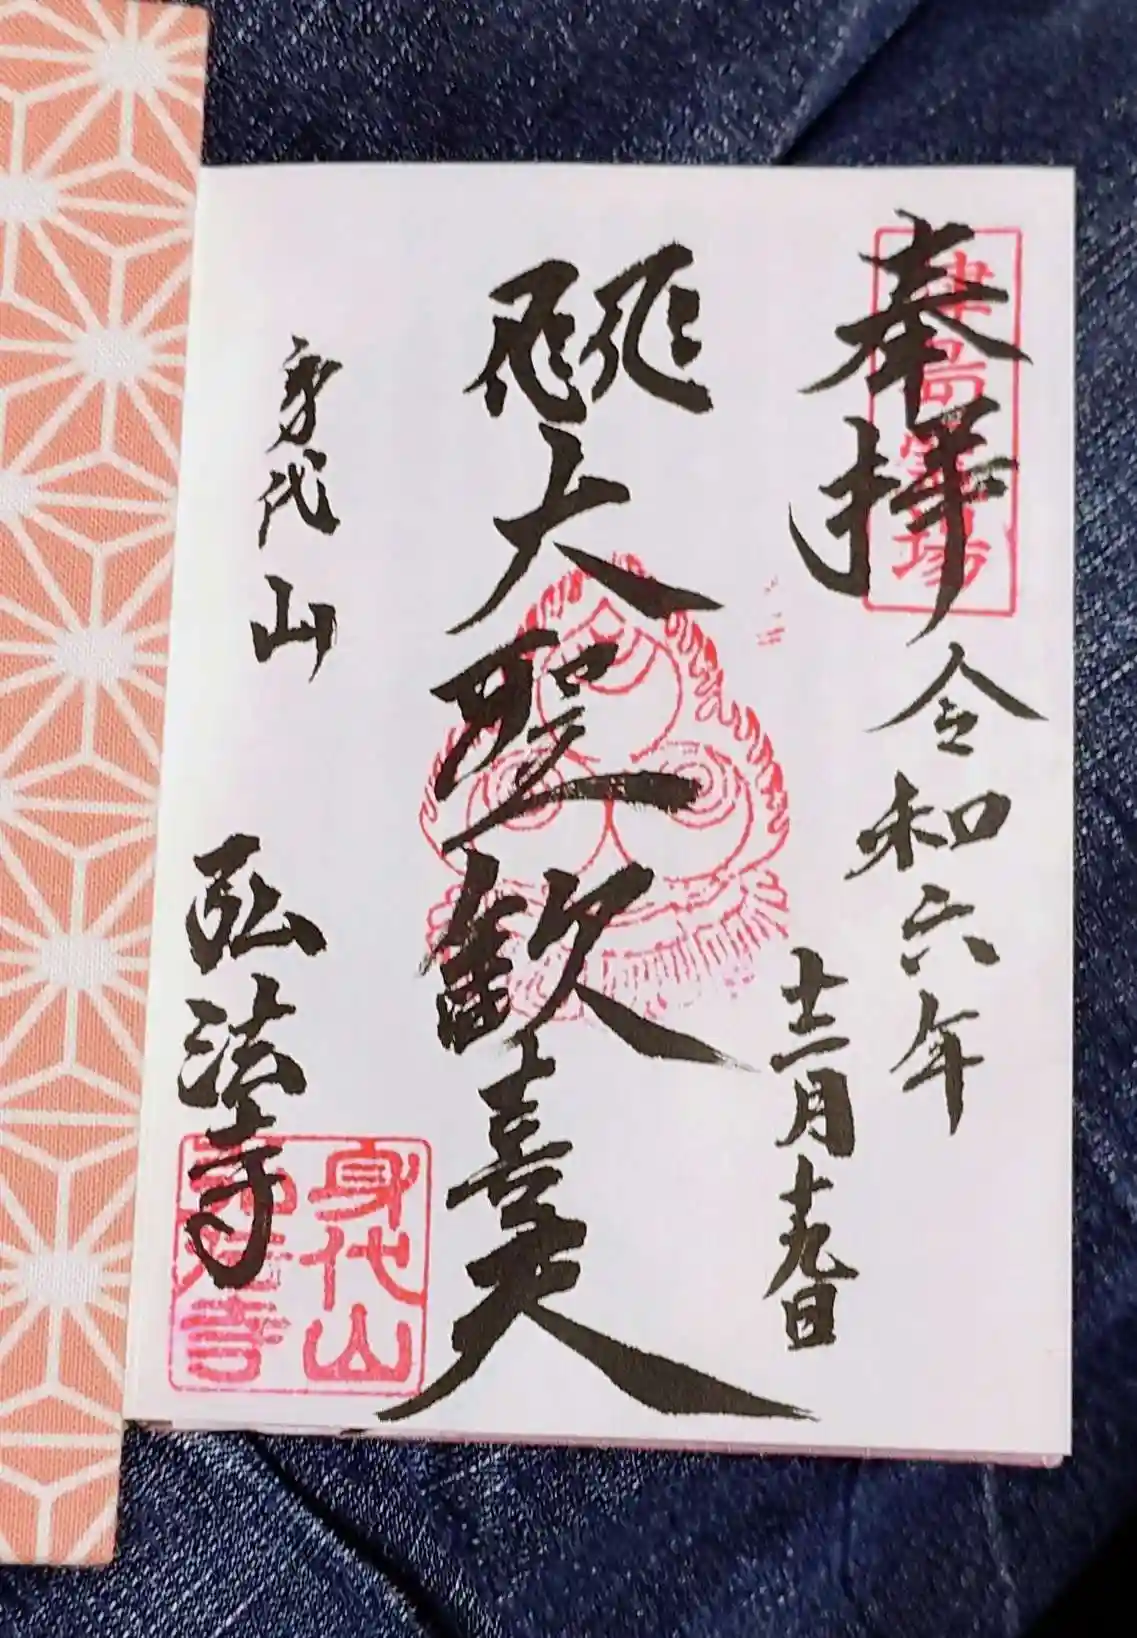 奉拝
令和六年
十二月十九日
大聖歓喜天
身代山
弘法寺
津島霊場
身代山